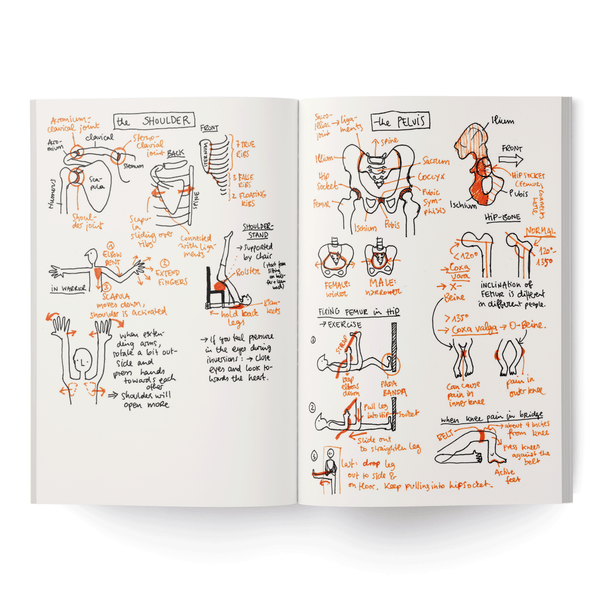 the SHOULDER
Acromium-
clavical joint
Acro-
mium
clavical
Sterno-
clavial
joint
sternum
Sca-
pula
Humerus
Shoul-
der joint
BACK
SPINE
Scapu-
la
sliding over
ribs!
Connected
with Liga-
ments
FRONT
STERNUM
7 TRUE
RIBS
3 FALSE
RIBS
2 FLOATING
RIBS
① ELBOW
BENDS
② EXTEND
FINGERS
IN WARRIOR
③
SCAPULA
moves down,
shoulder is activated
SHOULDER-
STAND
→ supported
by chair
Bolster
hold back
legs
blan-
kets
when exten-
ding arms,
rotate a bit out-
side and
press hands
towards each
other
⇒ Shoulder will
open more
→ If you feel pressure
in the eyes during
inversions: → close
eyes and look to-
wards the heart.
the PELVIS
Sacro-
iliac
joint
→ liga-
ments
spine
Ilium
Hip
Socket
Femur
Sacrum
Coccyx
Pubic
Sym-
physis
Ischium
Pubis
Ilium
FRONT
HIP SOCKET
(Femur
connects
here)
Pubis
Ischium
HIP-BONE
FEMALE:
wider
MALE:
narrower
NORMAL
<120°
120°-
135°
→ Coxa
vara
→ X-
Beine
INCLINATION OF
FEMUR is different
in different people.
>135°
→ Coxa valga → O-Beine.
Can cause
pain in
inner knee
pain in
outer knee
FIXING FEMUR in HIP
→ EXERCISE
①
STRAP
leg
down
②
Pull leg
into Hip
Socket
Slide out
to straighten leg
③
last: drop leg
out to side &
on floor. Keep pulling into hipsocket.
when knee pain in bridge
BELT
→ about 4 inches
from knee
press knees
against the
belt
Active
feet